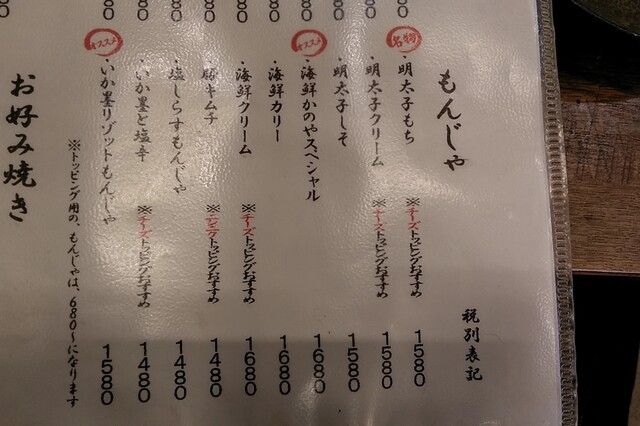 もんじゃ
税別表記
名物
・明太子もち ※チーズトッピングおすすめ 1580
・明太子クリーム ※チーズトッピングおすすめ 1580
・明太子しそ 1580
オススメ
・海鮮かのやスペシャル 1680
・海鮮カリー 1680
・海鮮クリーム ※チーズトッピングおすすめ 1680
・豚キムチ トッピングおすすめ 1480
・塩しらすもんじゃ 1480
・いか墨と塩辛 ※チーズトッピングおすすめ 1480
オススメ
・いか墨リゾットもんじゃ 1580
※トッピング用の、もんじゃは、680~になります
お好み焼き